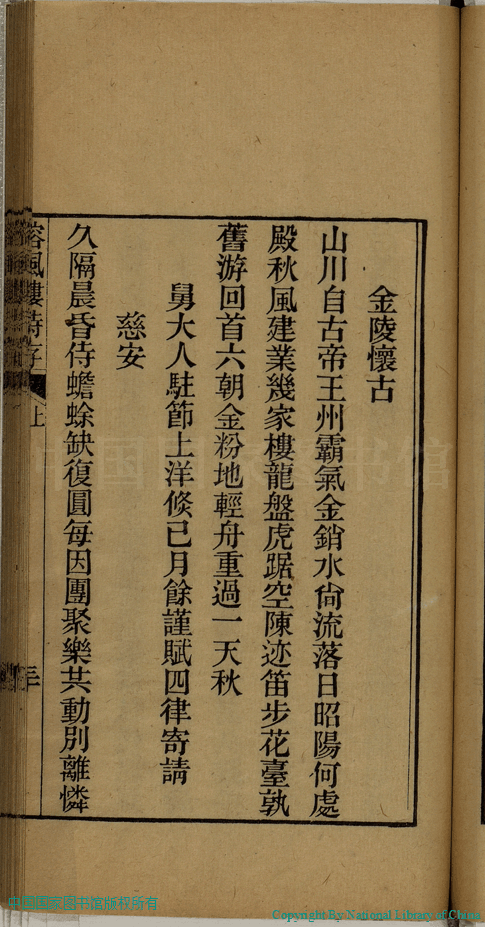 金陵懷古
山川自古帝王州霸氣金銷水尙流落日昭陽何處
殿秋風建業幾家樓龍盤虎踞空陳迹笛步花臺孰
舊游回首六朝金粉地輕舟重過一天秋
舅大人駐節上洋倐已月餘謹賦四律寄請
慈安
久隔晨昏侍蟾蜍缺復圓每因團聚樂共動別離憐
風樓詩存
上
中国国家图书馆
中国国家图书馆版权所有
Copyright By National Library of China